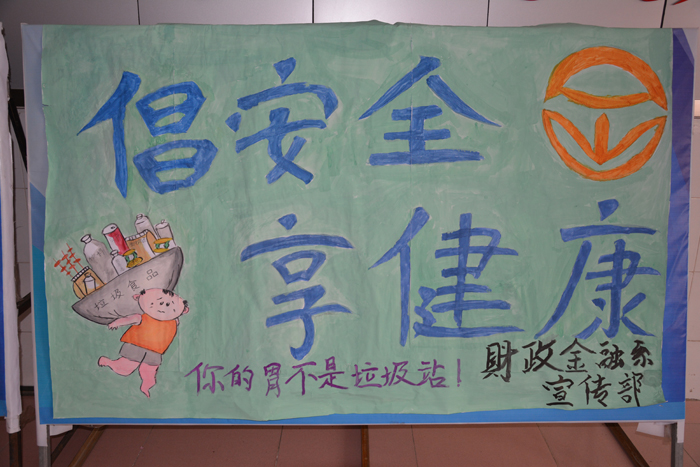 倡安全
享健康
垃圾食品
你的胃不是垃圾站！
財政金融系
宣传部